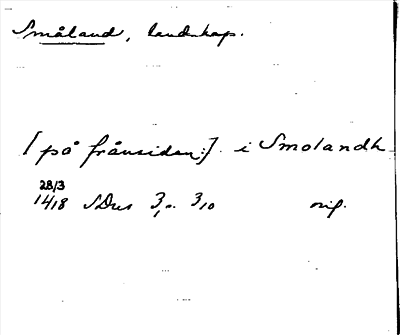 Småland, landskap.
[på frånsidan:] i Smolandh
28/3
1418 SDns 3, 3,10 orig.